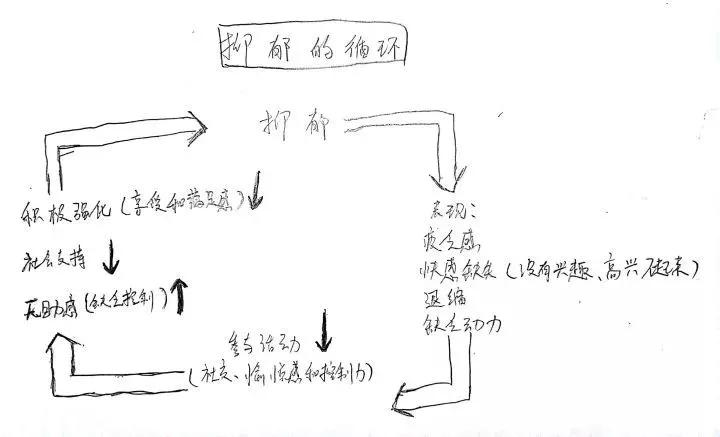 抑郁的循环
抑郁
表现：
疲乏感
快感缺失（没有兴趣、高兴不起来）
退缩
缺乏动力
参与活动
（社交、愉悦感和控制力）
积极强化（享受和满足感）
社会支持
无助感（缺乏控制）